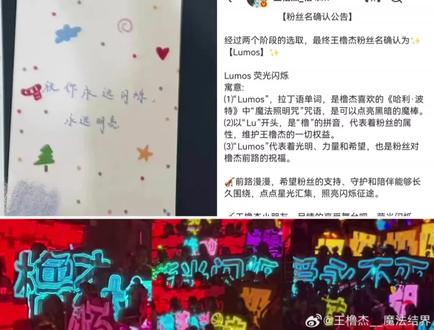 祝你永远闪烁,
永远明亮
【粉丝名确认公告】
经过两个阶段的选取，最终王橹杰粉丝名确认为✨
【Lumos】✨
Lumos 荧光闪烁
寓意:
(1)“Lumos”，拉丁语单词，是橹杰喜欢的《哈利·波
特》中“魔法照明咒”咒语，是可以点亮黑暗的魔棒。
(2)以“Lu”开头，是“橹”的拼音，代表着粉丝的属
性，维护王橹杰的一切权益。
(3)“Lumos”代表着光明、力量和希望，也是粉丝对
橹杰前路的祝福。
🚀前路漫漫，希望粉丝的支持、守护和陪伴能够长
久围绕，点点星光汇集，照亮闪烁征途。
@王橹杰__魔法结界